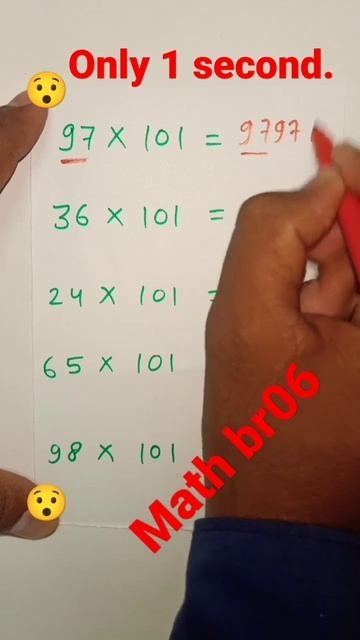 Only 1 second.
97 × 101 = 9797
36 × 101 =
24 × 101 =
65 × 101
98 × 101
Math br06